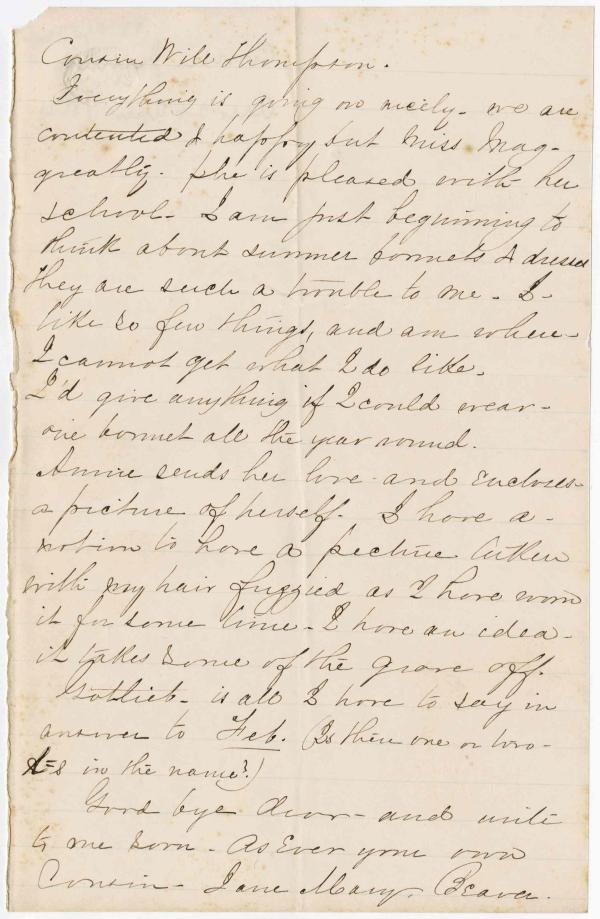 Cousin Will Thompson.
Everything is going on nicely - we are
contented & happy but Miss Mag -
greatly. She is pleased with her
school - I am just beginning to
think about summer bonnets & dresses
they are such a trouble to me - I -
like so few things, and am where -
I cannot get what I do like.
I'd give anything if I could wear -
one bonnet all the year round.
Annie sends her love - and encloses -
a picture of herself. I have a -
notion to have a picture taken
with my hair fuzzied as I have worn
it for some time - I have an idea -
it takes some of the grave off.
Gottlieb - is all I have to say in
answer to Feb. (Is there one or two -
t=s in the name?)
Good bye dear - and write
to me soon - As Ever your own
Cousin - Jane Mary. Beaver.